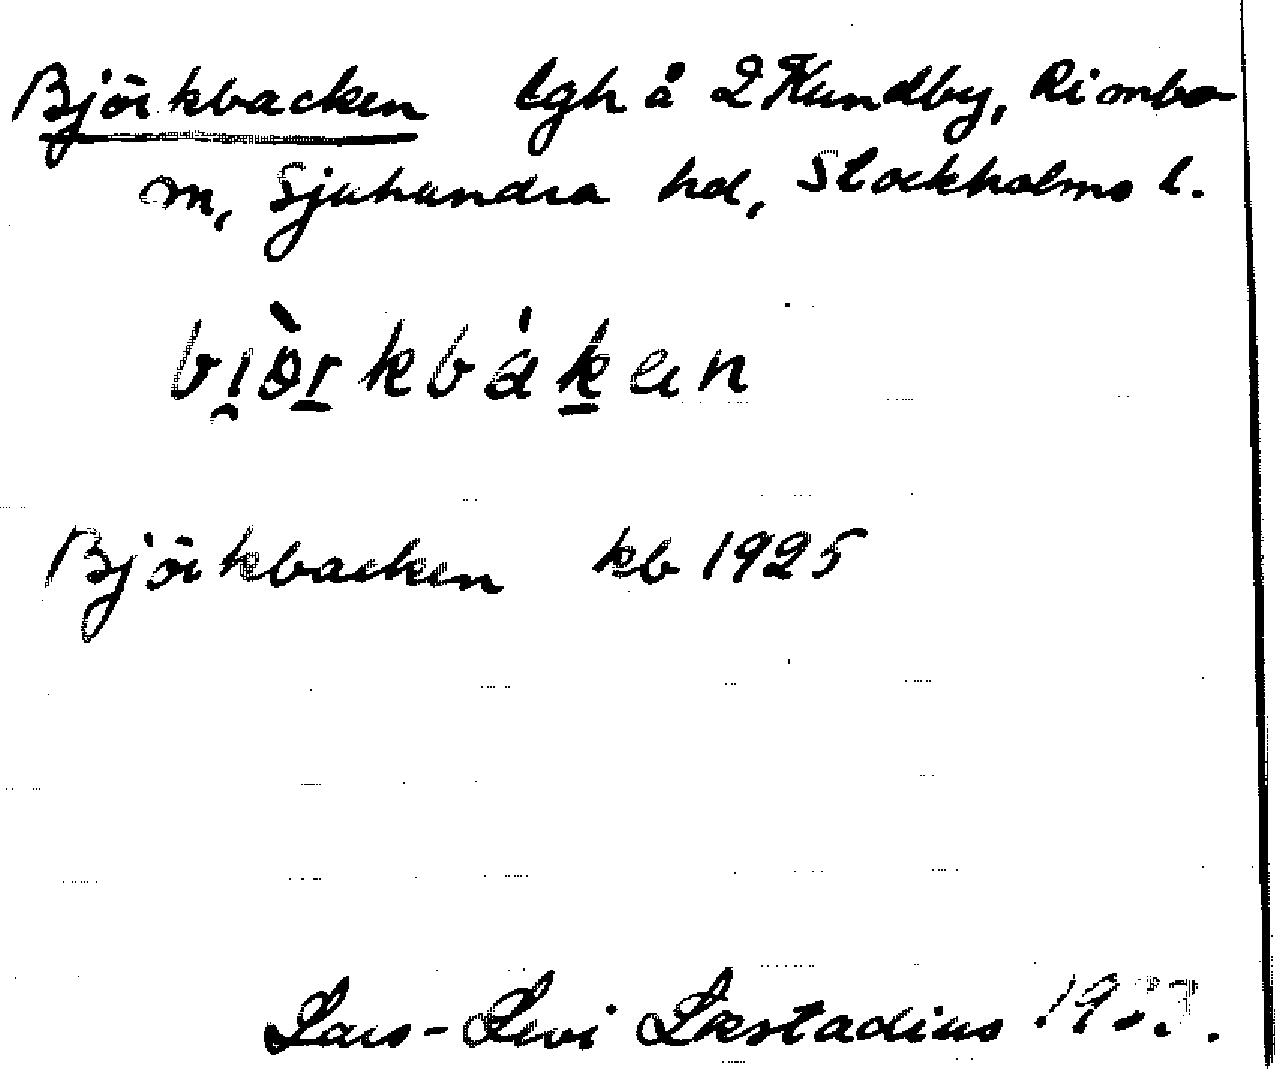 Björkbacken lgh å 2 Kundby, Rimbo
m, Sjuhundra hd, Stockholms l.
bi̯ò̱ṟkbàḵen
Björkbacken kb 1925
Lars-Levi Læstadius 1933.